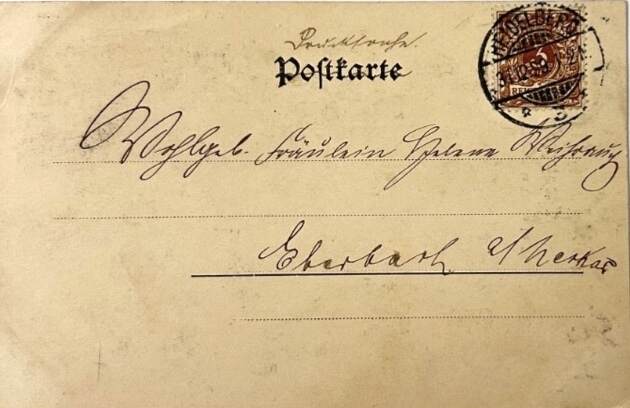 Drucksache.
Postkarte
HEIDELBERG
3
REICHSPOST
Wohlgeb. Fräulein Helene Weihrauch
Eberbach a/Neckar